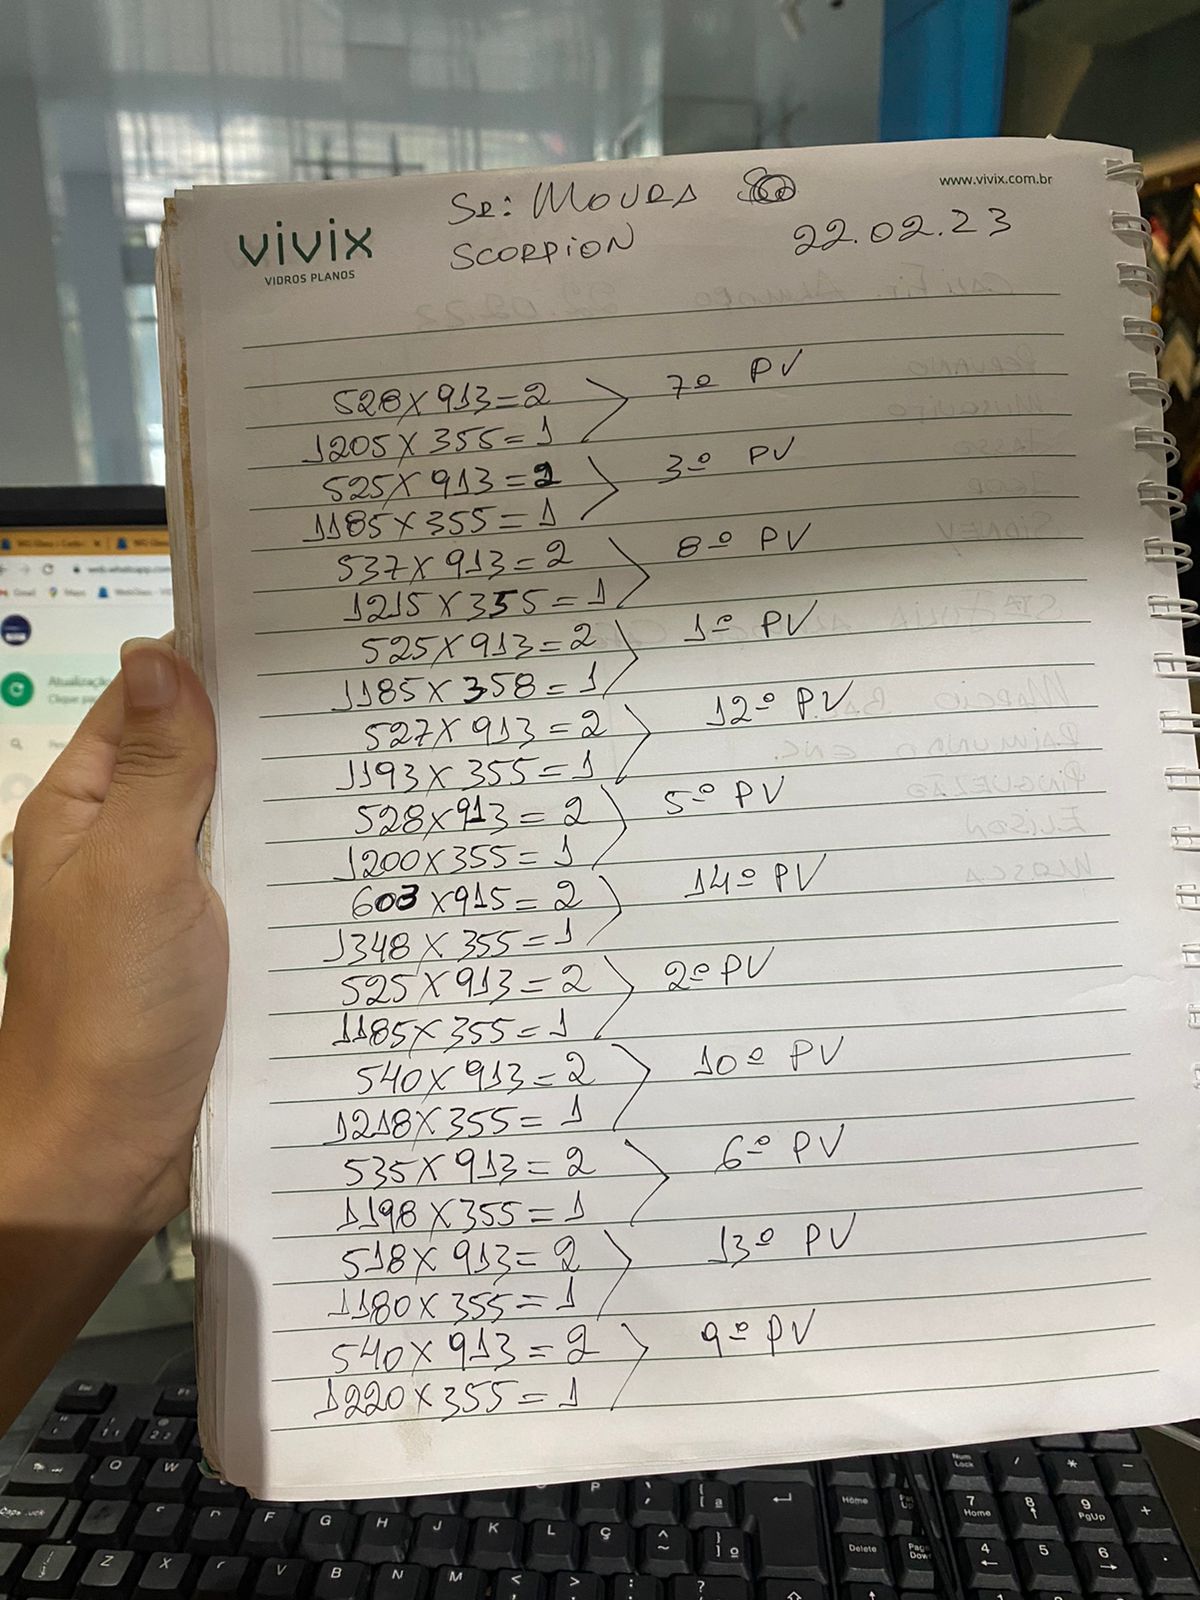 Sr: MOURA
www.vivix.com.br
vivix
VIDROS PLANOS
SCORPION
22.02.23
528 X 913 = 2
7º PV
1205 X 355 = 1
525 X 913 = 2
3º PV
1185 X 355 = 1
537 X 913 = 2
8º PV
1215 X 355 = 1
525 X 913 = 2
1º PV
1185 X 358 = 1
527 X 913 = 2
12º PV
1193 X 355 = 1
528 X 913 = 2
5º PV
1200 X 355 = 1
603 X 915 = 2
14º PV
1348 X 355 = 1
525 X 913 = 2
2º PV
1185 X 355 = 1
540 X 913 = 2
10º PV
1218 X 355 = 1
535 X 913 = 2
6º PV
1198 X 355 = 1
518 X 913 = 2
13º PV
1180 X 355 = 1
540 X 913 = 2
9º PV
1220 X 355 = 1
web.whatsapp.com
Gmail
Maps
Atualização
Q
W
F
G
H
J
K
L
Ç
Z
X
V
B
N
M
P
Home
Delete
Num Lock
7 Home
8
9 PgUp
4
5
6